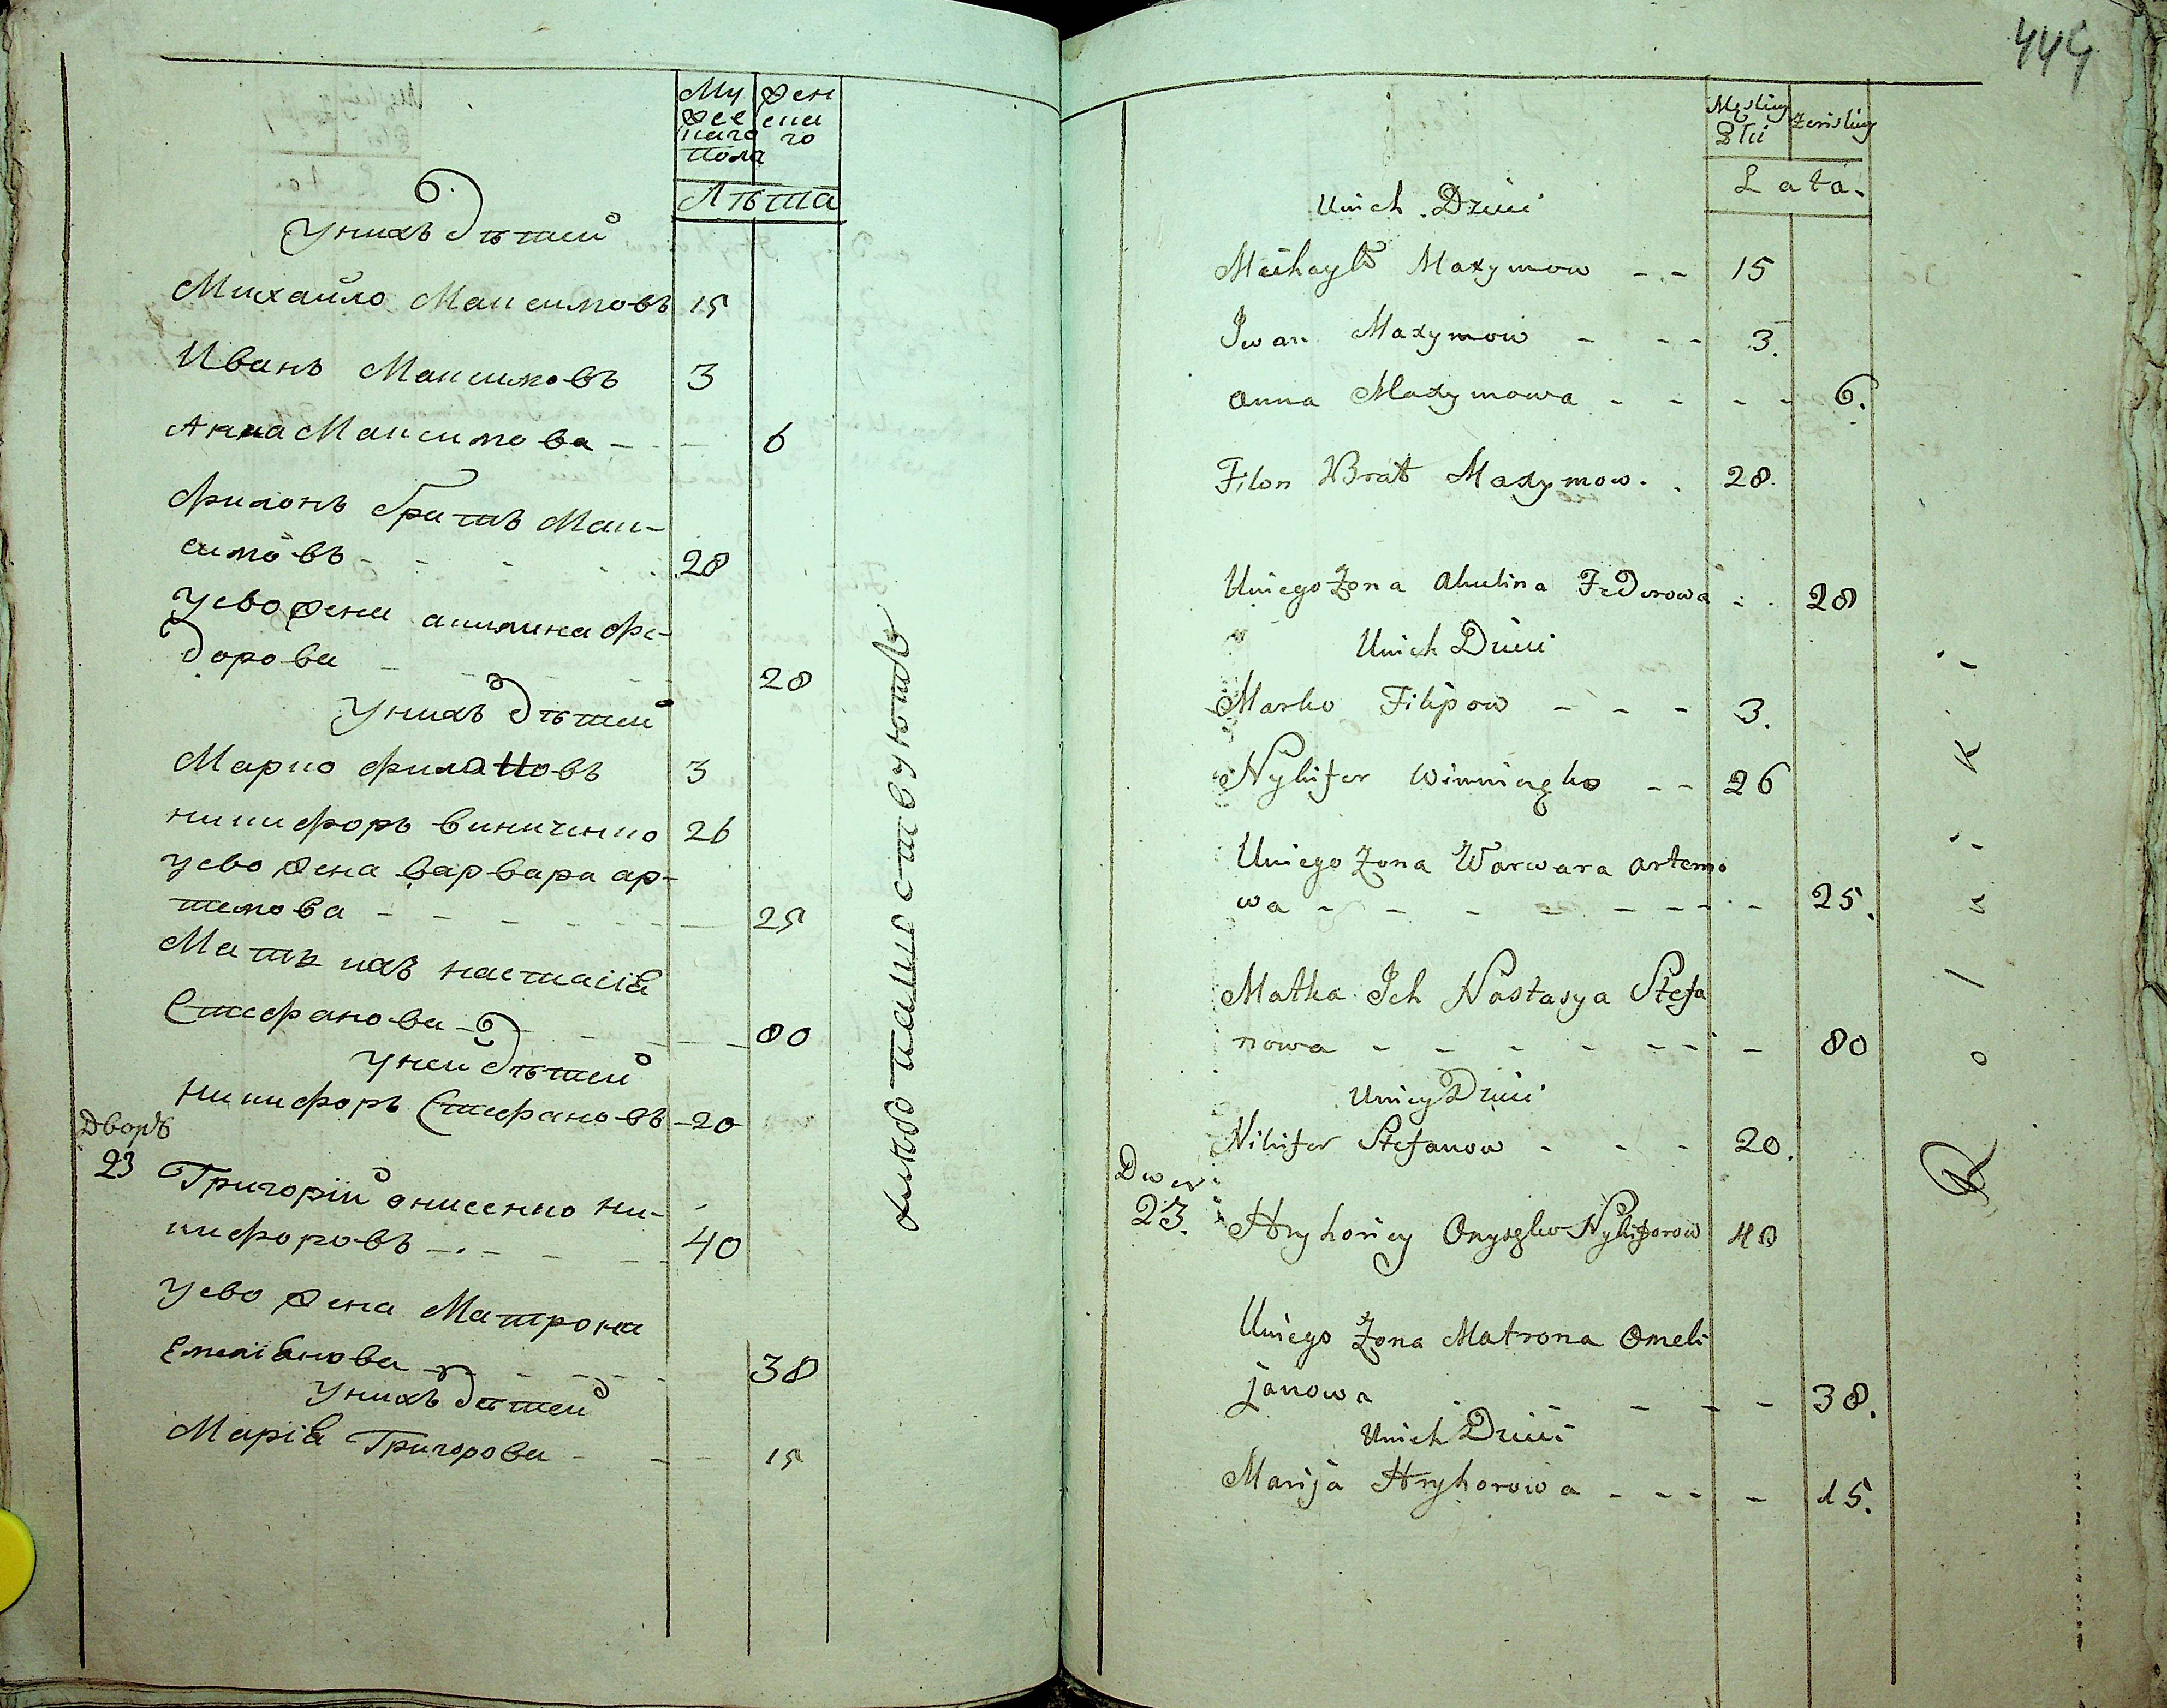 Му
жес
наго
пола
Жен
сна
го
Лѣта
У нихъ дѣтей
Михайло Максимовъ 15
Иванъ Максимовъ 3
Анна Максимова - - 6
Филонъ братъ Мак-
симовъ - - - - 28
У ево жена акилина фе-
дорова - - - - 28
У нихъ дѣтей
Марко филоновъ 3
никифоръ виниченко 26
У ево жена варвара ар-
темова - - - - - - - 25
Матъ ихъ настасія
Стефанова - - - - - 80
У ней дѣтей
никифоръ Стефановъ - 20
Дворъ
23 Григорій онисенко ни-
кифоровъ - - - - 40
У ево жена Матрона
Емеліянова - - - - - 38
У нихъ дѣтей
Марія Григорова - - - 15
444
Męskiey
Płci
Żenskiey
Lata.
U nich Dzieci
Michayło Maxymow - - 15
Iwan Maxymow - - - 3.
Anna Maxymowa - - - - 6.
Filon Brat Maxymow. . 28.
U niego Żona Akulina Fedorowa - . 28
U nich Dzieci
Marko Filipow - - - 3.
Nykifer Winniczko - - 26
U niego Żona Warwara Artemo
wa - - - - - - - - 25.
Matka Ich Nastasya Stefa
nowa - - - - - - - 80
U niey Dzieci
Nikifer Stefanow - - - 20.
Dwor
23. Hryhoriey Onyszko Nykiforow 40
U niego Żona Matrona Omeli
janowa - - - - - 38.
U nich Dzieci
Marija Hryhorowa - - - - 15.